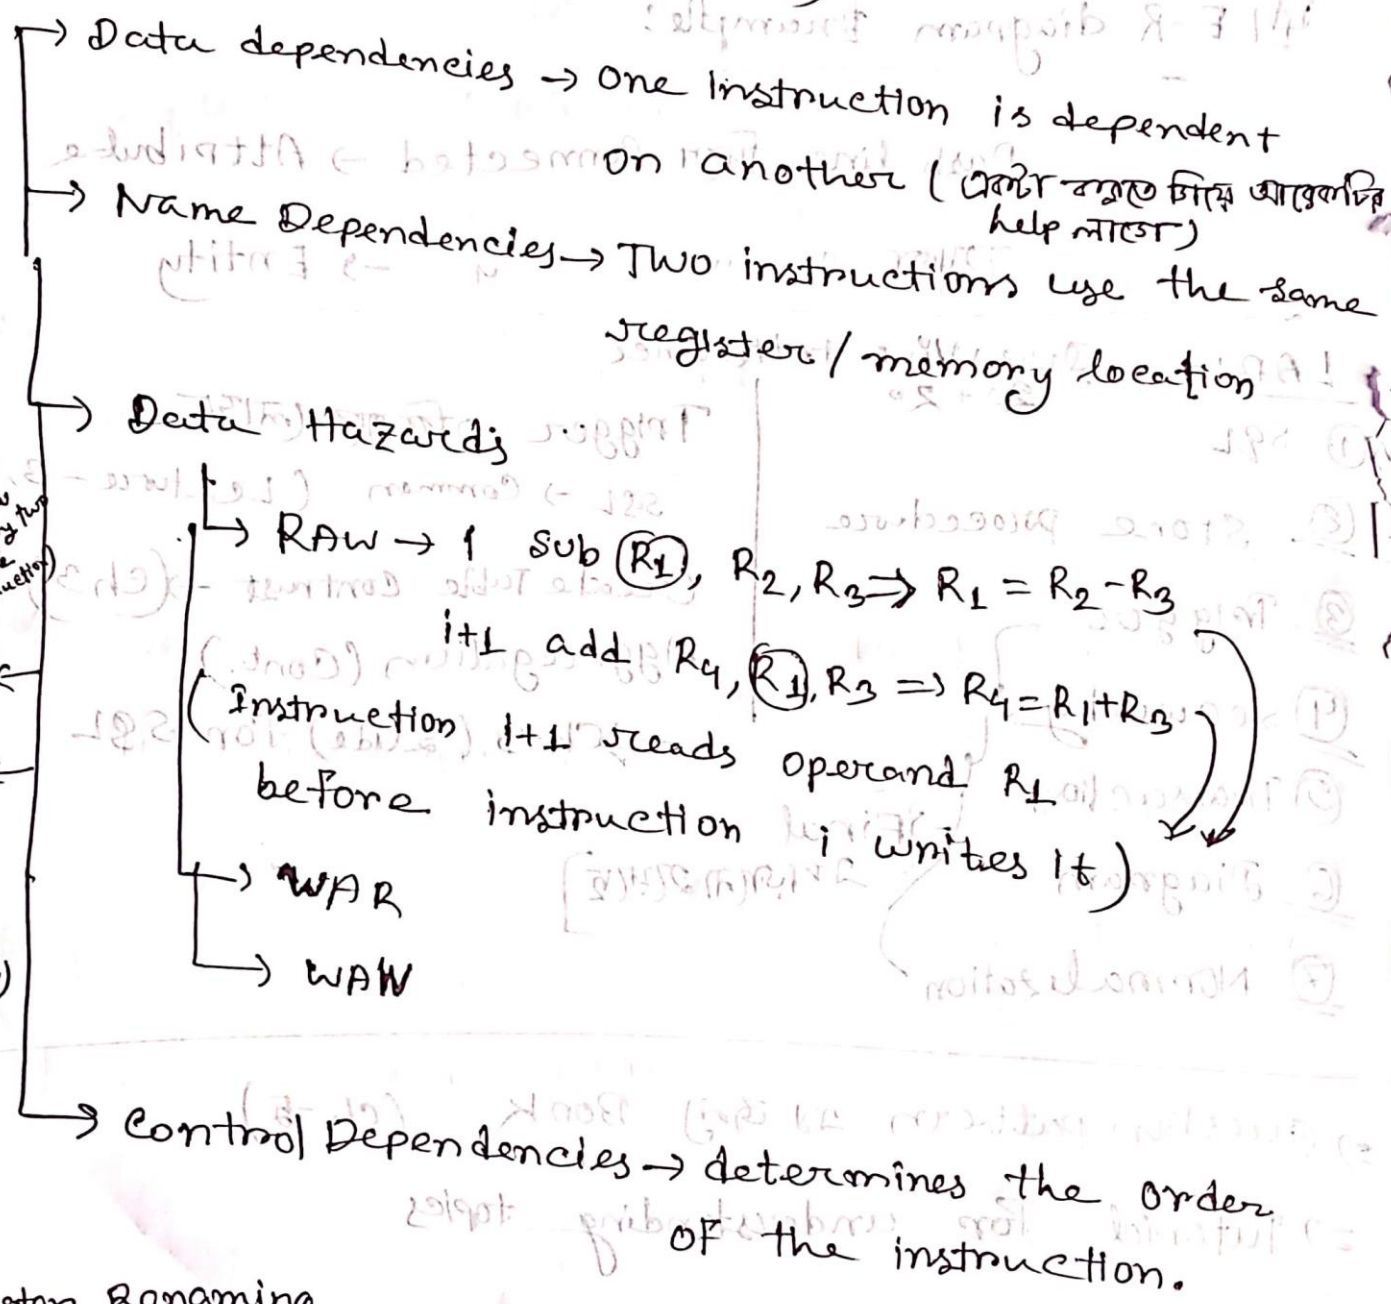 → Data dependencies → one Instruction is dependent
on another (একটা করতে গিয়ে আরেকটির
help লাগে)
→ Name Dependencies → Two instructions use the same
register / memory location
→ Data Hazards
→ RAW → i sub R1, R2, R3 ⇒ R1 = R2 - R3
i+1 add R4, R1, R3 ⇒ R4 = R1 + R3
(Instruction i+1 reads operand R1
before instruction i writes it)
→ WAR
→ WAW
→ Control Dependencies → determines the order
of the instruction.
Renaming